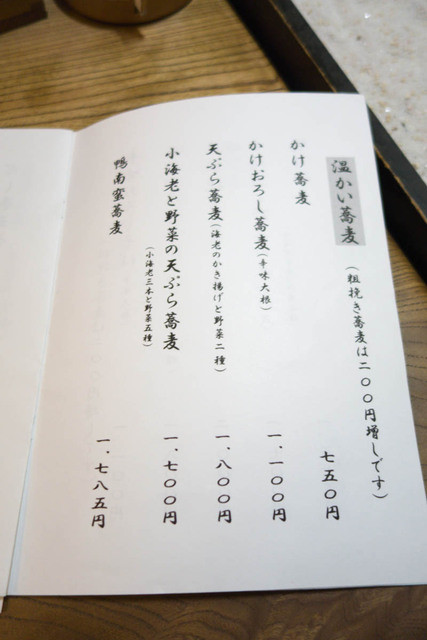 温かい蕎麦
（粗挽き蕎麦は二〇〇円増しです）
かけ蕎麦 七五〇円
かけおろし蕎麦（辛味大根） 一、一〇〇円
天ぷら蕎麦（海老のかき揚げと野菜二種） 一、八〇〇円
小海老と野菜の天ぷら蕎麦 一、七〇〇円
（小海老三本と野菜五種）
鴨南蛮蕎麦 一、七八五円